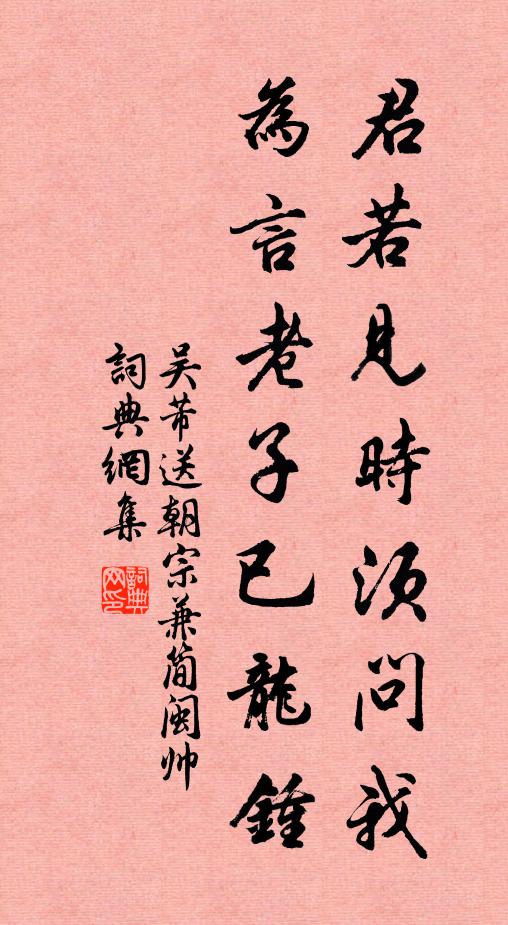 君若見時須問我
為言老子已龍鍾
吴芾送朝宗兼简闽帅
詞典網集
詞典网印